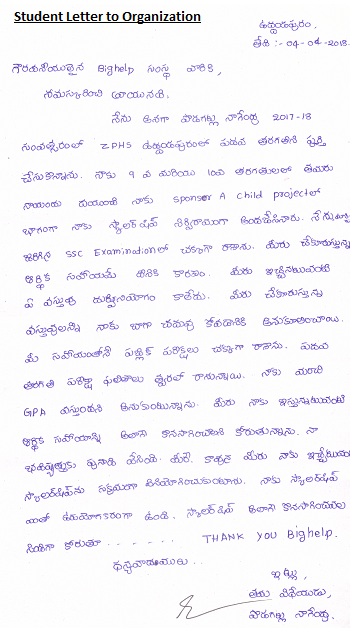 Student Letter to Organization
ఉద్దయపురం,
తేది :- 04-04-2018.
గౌరవనీయులైన Bighelp సంస్థ వారికి,
నమస్కరించి వ్రాయునది.
నేను అనగా నాగేంద్ర 2017-18
సంవత్సరంలో ZPHS లో పదవ తరగతిని పూర్తి
చేసుకొన్నాను. నాకు 9 వ మరియు 10వ తరగతులలో తమరు
నాకు sponsor A child projectలో
భాగంగా నాకు స్కాలర్‌షిప్ అందజేసినారు. నేను
జరిగిన SSC Examinationలో చక్కగా రాశాను. మీరు చేకూరుస్తున్న
ఆర్థిక సహాయమే దీనికి కారణం. మీరు ఇచ్చినటువంటి
ఏ వస్తువు దుర్వినియోగం కాలేదు. మీరు చేకూరుస్తున్న
వస్తువులన్నీ నాకు బాగా చదువు కోవడానికి అనుకూలించాయి.
మీ సహాయంతోనే పబ్లిక్ పరీక్షలు చక్కగా రాశాను. పదవ
తరగతి పరీక్షా ఫలితాలు త్వరలో రానున్నాయి. నాకు మంచి
GPA వస్తుందని అనుకుంటున్నాను. మీరు నాకు ఇస్తున్నటువంటి
ఆర్థిక సహాయాన్ని ఇలాగే కొనసాగించాలని కోరుతున్నాను. నా
భవిష్యత్తుకు పునాది వేసింది మీరే. కావున మీరు నాకు
స్కాలర్‌షిప్‌ను సక్రమంగా వినియోగించుకుంటాను. నాకు స్కాలర్‌షిప్
ఎంతో ఉపయోగకరంగా ఉంది. స్కాలర్‌షిప్ ఇలాగే
కోరుతూ - - - - - - . THANK YOU Bighelp.
ధన్యవాదములు . .
ఇట్లు,
తమ విధేయుడు,
నాగేంద్ర.